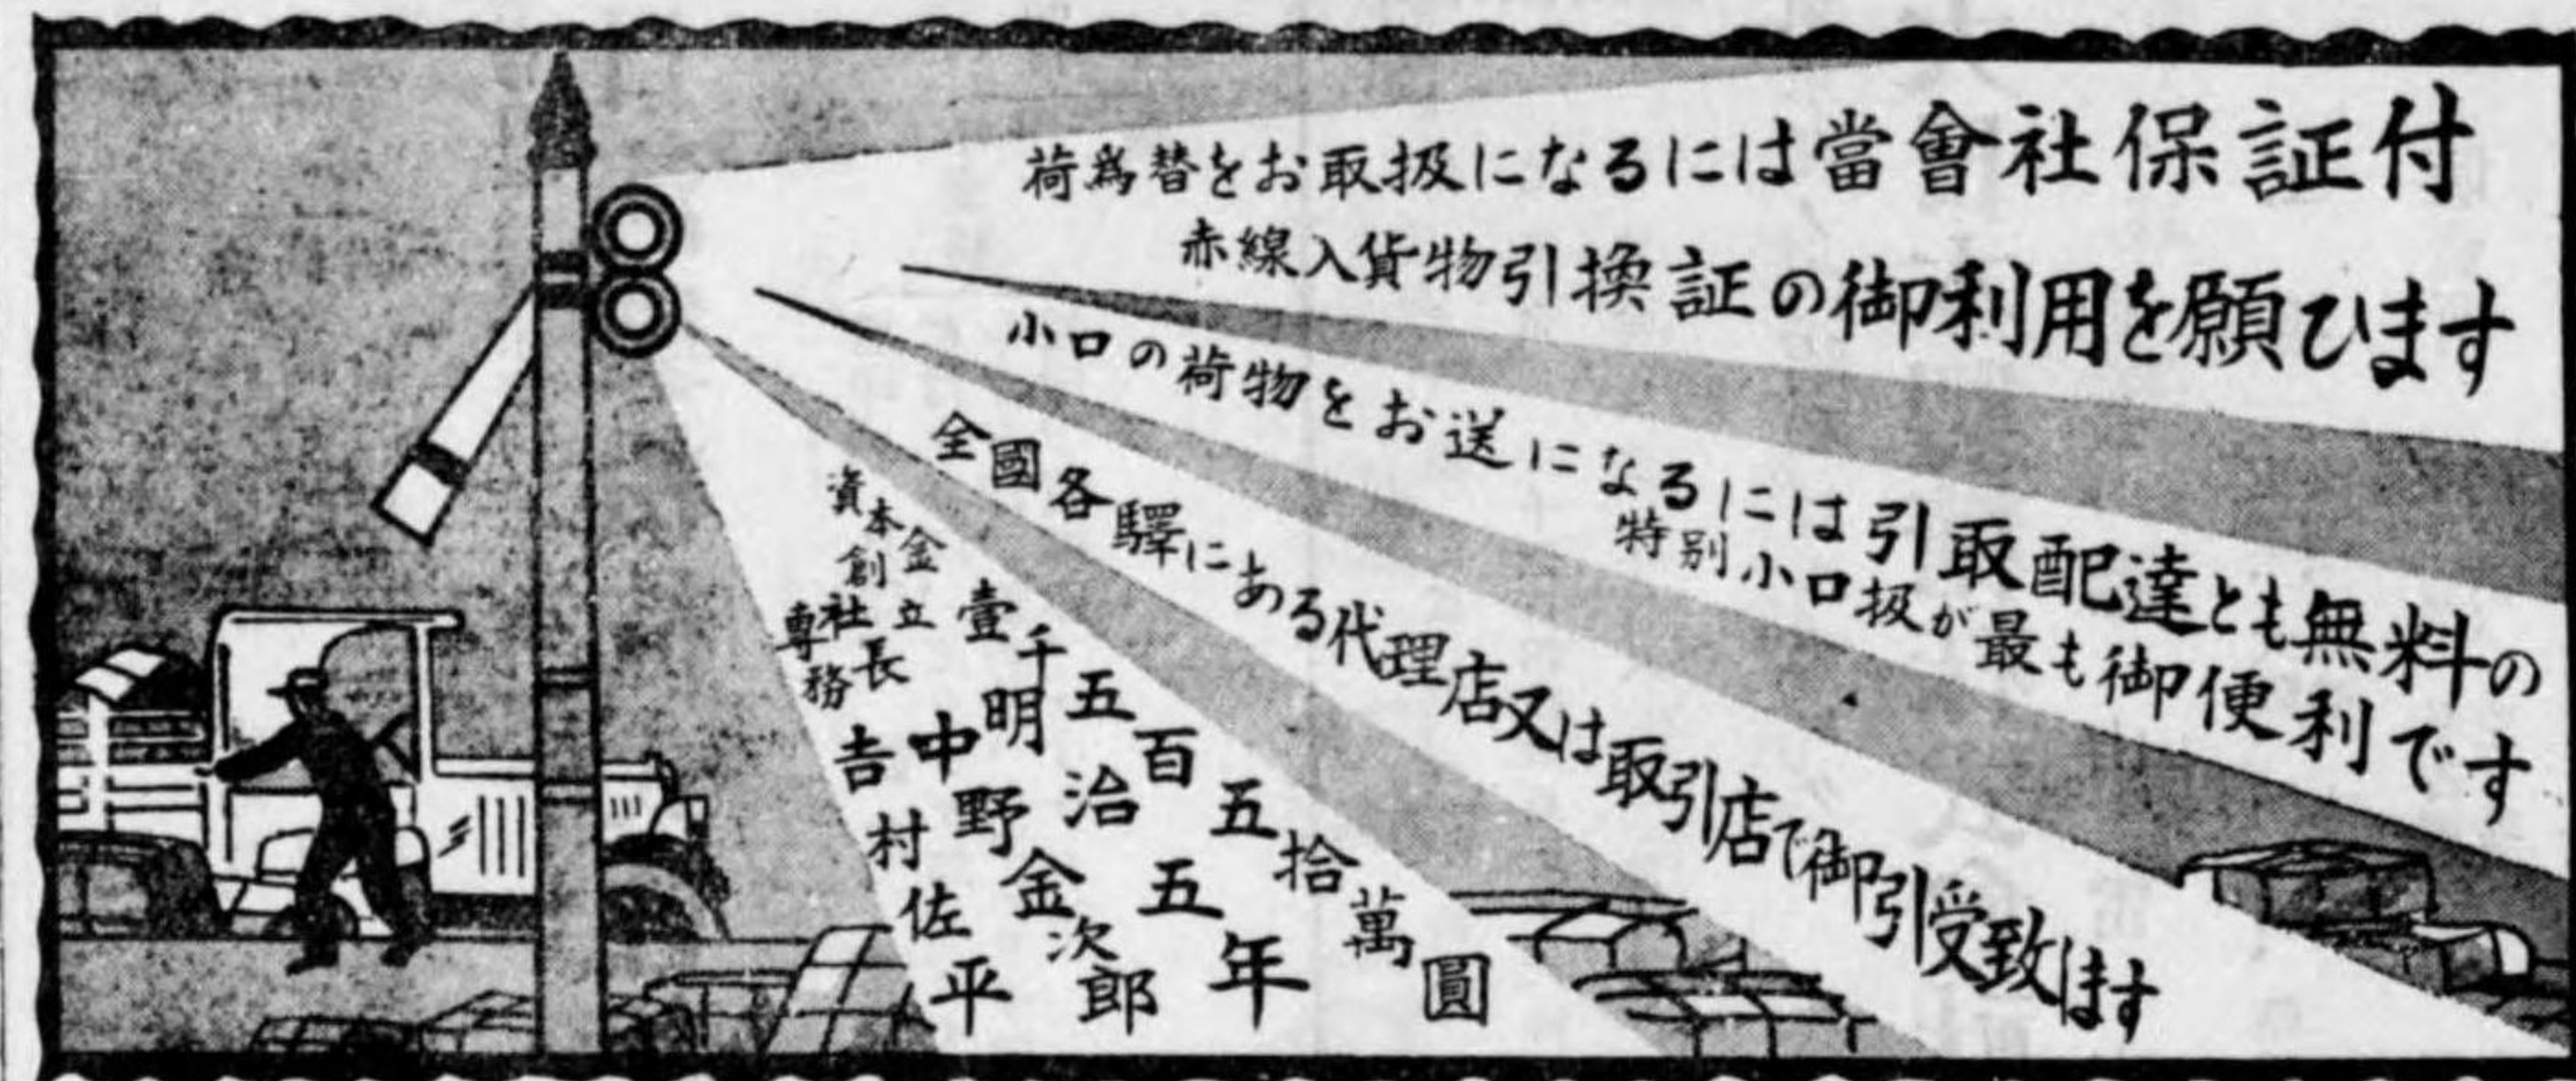 荷為替をお取扱になるには當會社保証付
赤線入貨物引換証の御利用を願ひます
小口の荷物をお送になるには引取配達とも無料の
特別小口扱が最も御便利です
全國各驛にある代理店又は取引店で御引受致します
資本金 壹千五百五拾萬圓
創立 明治五年
社長 中野金次郎
専務 吉村佐平